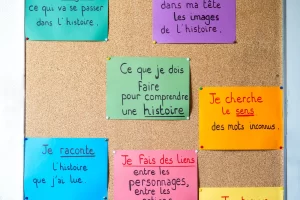 ce qui va se passer
dans l'histoire.
dans ma tête
les images
de l'histoire.
Ce que je dois
faire
pour comprendre
une histoire
Je cherche
le sens
des mots inconnus.
Je raconte
l'histoire
que j'ai lue.
Je fais des liens
entre les
personnages,
entre les